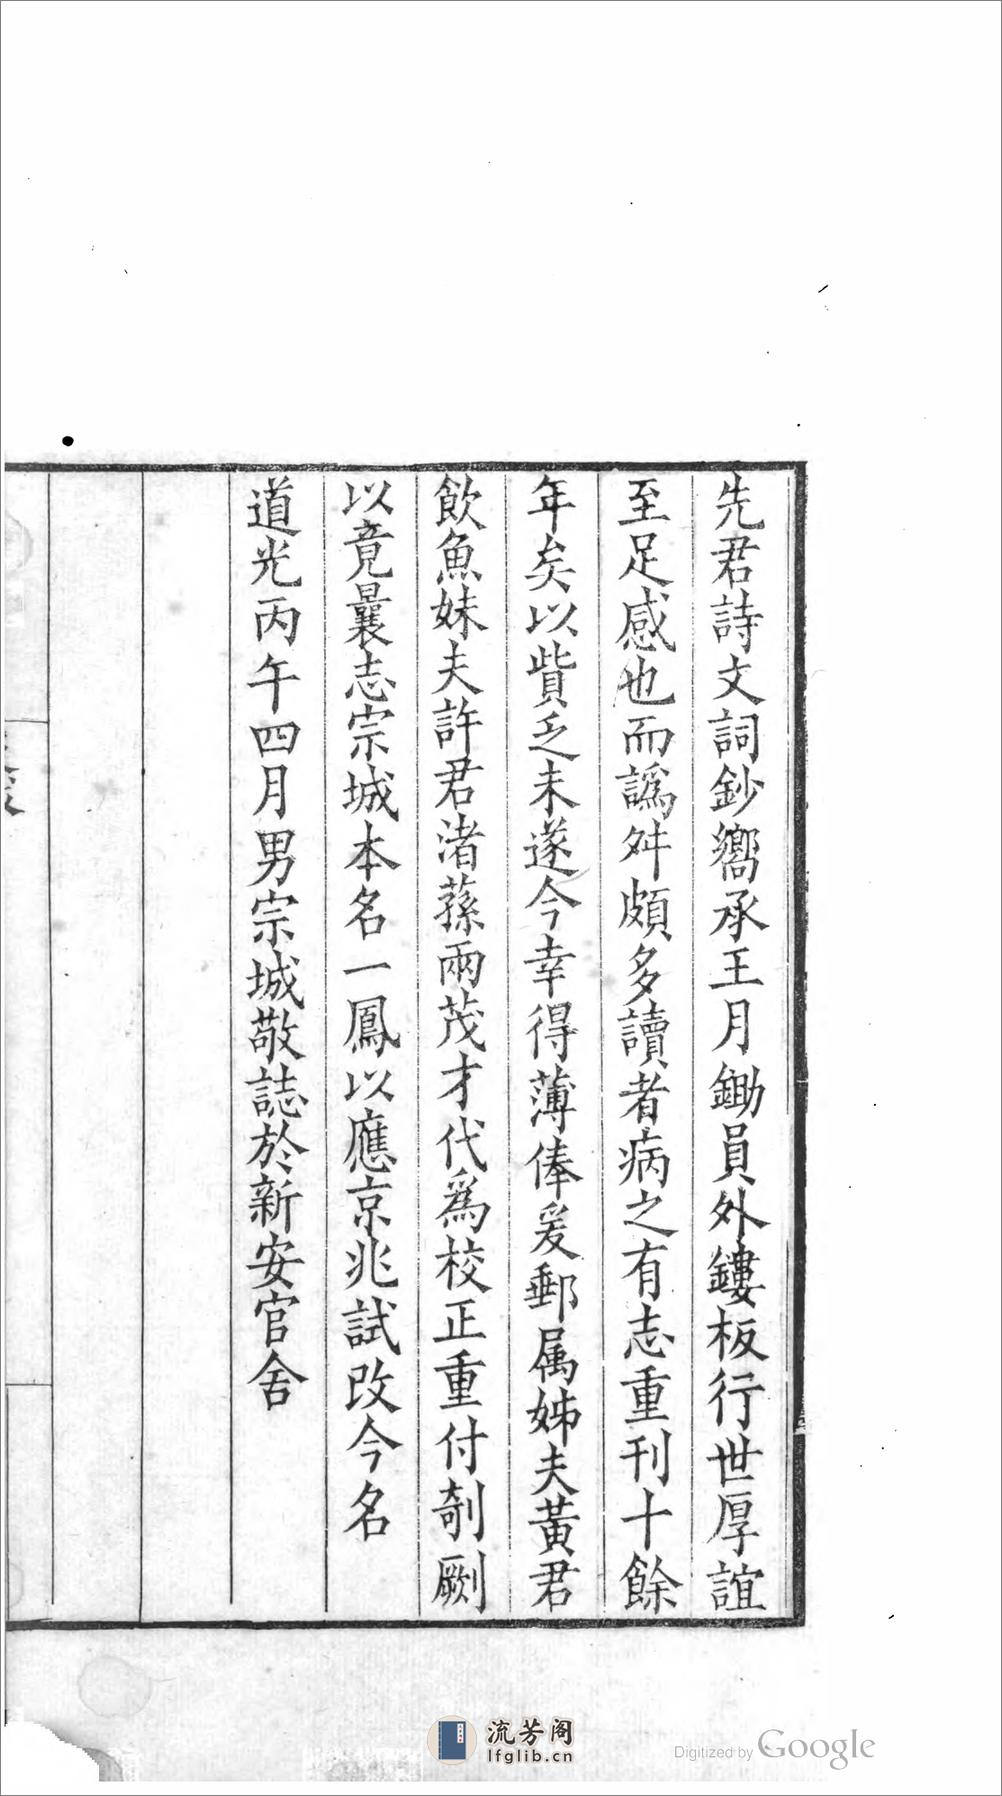 先君詩文詞鈔嚮承王月鋤員外鏤板行世厚誼
至足感也而譌舛頗多讀者病之有志重刊十餘
年矣以貲乏未遂今幸得薄俸爰郵属姊夫黃君
飲魚妹夫許君渚蓀兩茂才代爲校正重付剞劂
以竟曩志宗城本名一鳳以應京兆試改今名
道光丙午四月男宗城敬誌於新安官舍
流芳阁
lfglib.cn
Digitized by Google